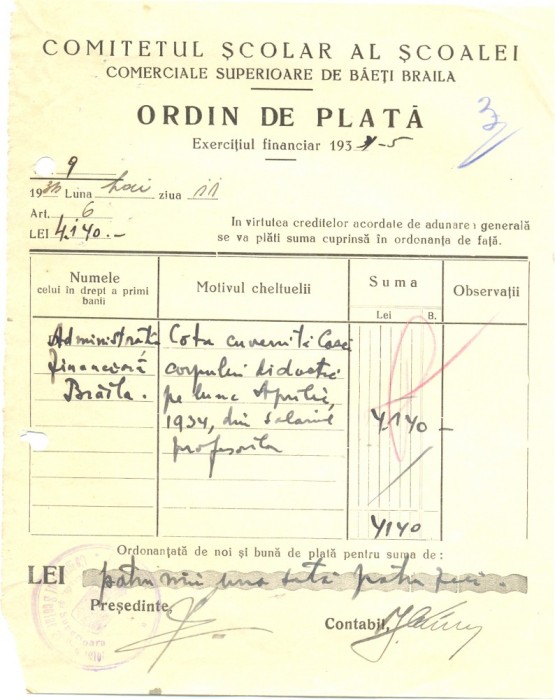 COMITETUL ȘCOLAR AL ȘCOALEI
COMERCIALE SUPERIOARE DE BĂEȚI BRAILA
ORDIN DE PLATĂ
Exercițiul financiar 1934-5
9
1934 Luna Mai ziua 11
Art. 6
LEI 4140.-
In virtutea creditelor acordate de adunarea generală
se va plăti suma cuprinsă în ordonanța de față.
Numele
celui în drept a primi
banii
Motivul cheltuelii
Suma
Lei B.
Observații
Administrația
Financiară
Brăila.
Cota cuvenită Casei
corpului didactic
pe luna Aprilie,
1934, din salariile
profesorilor
4140 -
4140
Ordonanțată de noi și bună de plată pentru suma de :
LEI patru mii una sută patru zeci.
Președinte,
Contabil,